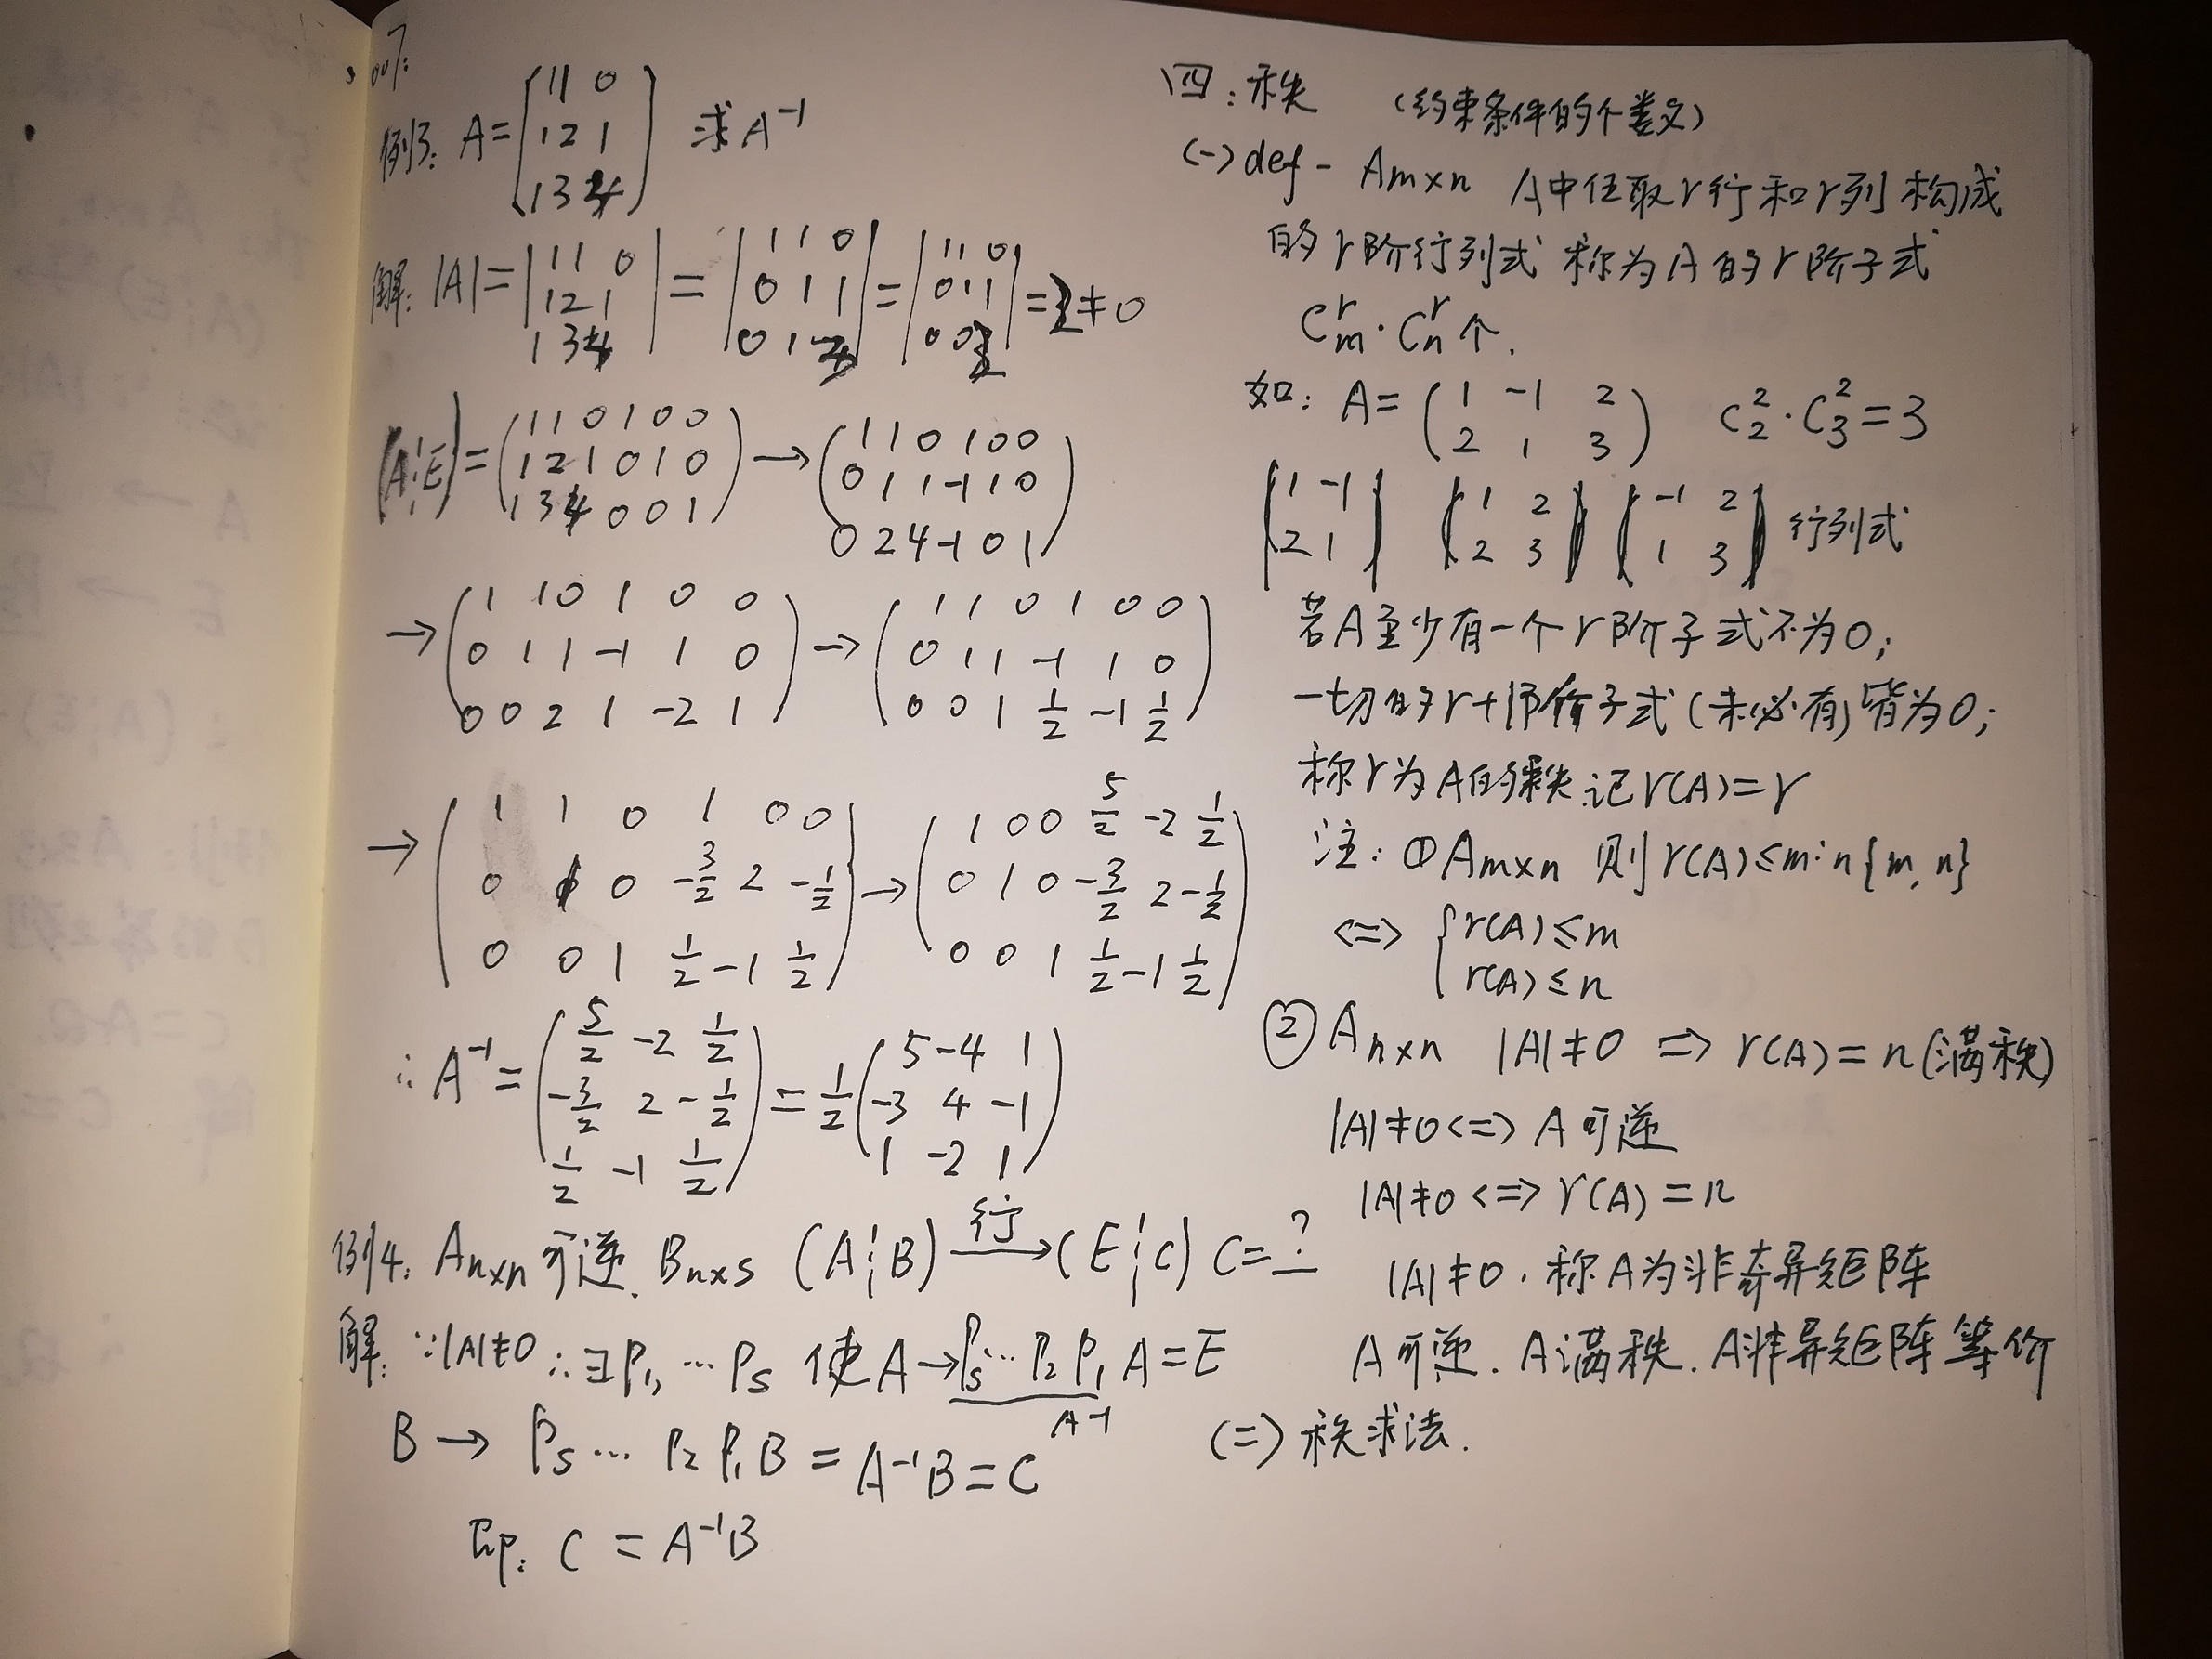 例3: A=[1 1 0
1 2 1 求A⁻¹
1 3 4]
解: |A|=|1 1 0; 1 2 1; 1 3 4|=|1 1 0; 0 1 1; 0 2 4|=|1 1 0; 0 1 1; 0 0 2|=2≠0
(A¦E)=(1 1 0 1 0 0; 1 2 1 0 1 0; 1 3 4 0 0 1)→(1 1 0 1 0 0; 0 1 1 -1 1 0; 0 2 4 -1 0 1)
→(1 1 0 1 0 0; 0 1 1 -1 1 0; 0 0 2 1 -2 1)→(1 1 0 1 0 0; 0 1 1 -1 1 0; 0 0 1 1/2 -1 1/2)
→(1 1 0 1 0 0; 0 1 0 -3/2 2 -1/2; 0 0 1 1/2 -1 1/2)→(1 0 0 5/2 -2 1/2; 0 1 0 -3/2 2 -1/2; 0 0 1 1/2 -1 1/2)
∴A⁻¹=(5/2 -2 1/2; -3/2 2 -1/2; 1/2 -1 1/2)=1/2(5 -4 1; -3 4 -1; 1 -2 1)
例4: Aₙₓₙ可逆. Bₙₓₛ (A¦B) —行→ (E¦C) C=?
解: ∵|A|≠0 ∴∃P₁, …Pₛ 使A→Pₛ…P₂P₁A=E
A⁻¹
B→Pₛ…P₂P₁B=A⁻¹B=C
即: C=A⁻¹B
四: 秩 (约束条件的个数)
(一) def- Aₘₓₙ A中任取r行和r列构成
的r阶行列式称为A的r阶子式
Cₘʳ·Cₙʳ个.
如: A=(1 -1 2; 2 1 3) C₂²·C₃²=3
|1 -1; 2 1| |1 2; 2 3| |-1 2; 1 3| 行列式
若A至少有一个r阶子式不为0;
一切的r+1阶子式(未必有)皆为0;
称r为A的秩.记r(A)=r
注: ①Aₘₓₙ 则r(A)≤min{m,n}
<=> {r(A)≤m
r(A)≤n
② Aₙₓₙ |A|≠0 => r(A)=n(满秩)
|A|≠0<=>A可逆
|A|≠0<=>r(A)=n
|A|≠0. 称A为非奇异矩阵
A可逆. A满秩. A非异矩阵等价
(二) 秩求法.